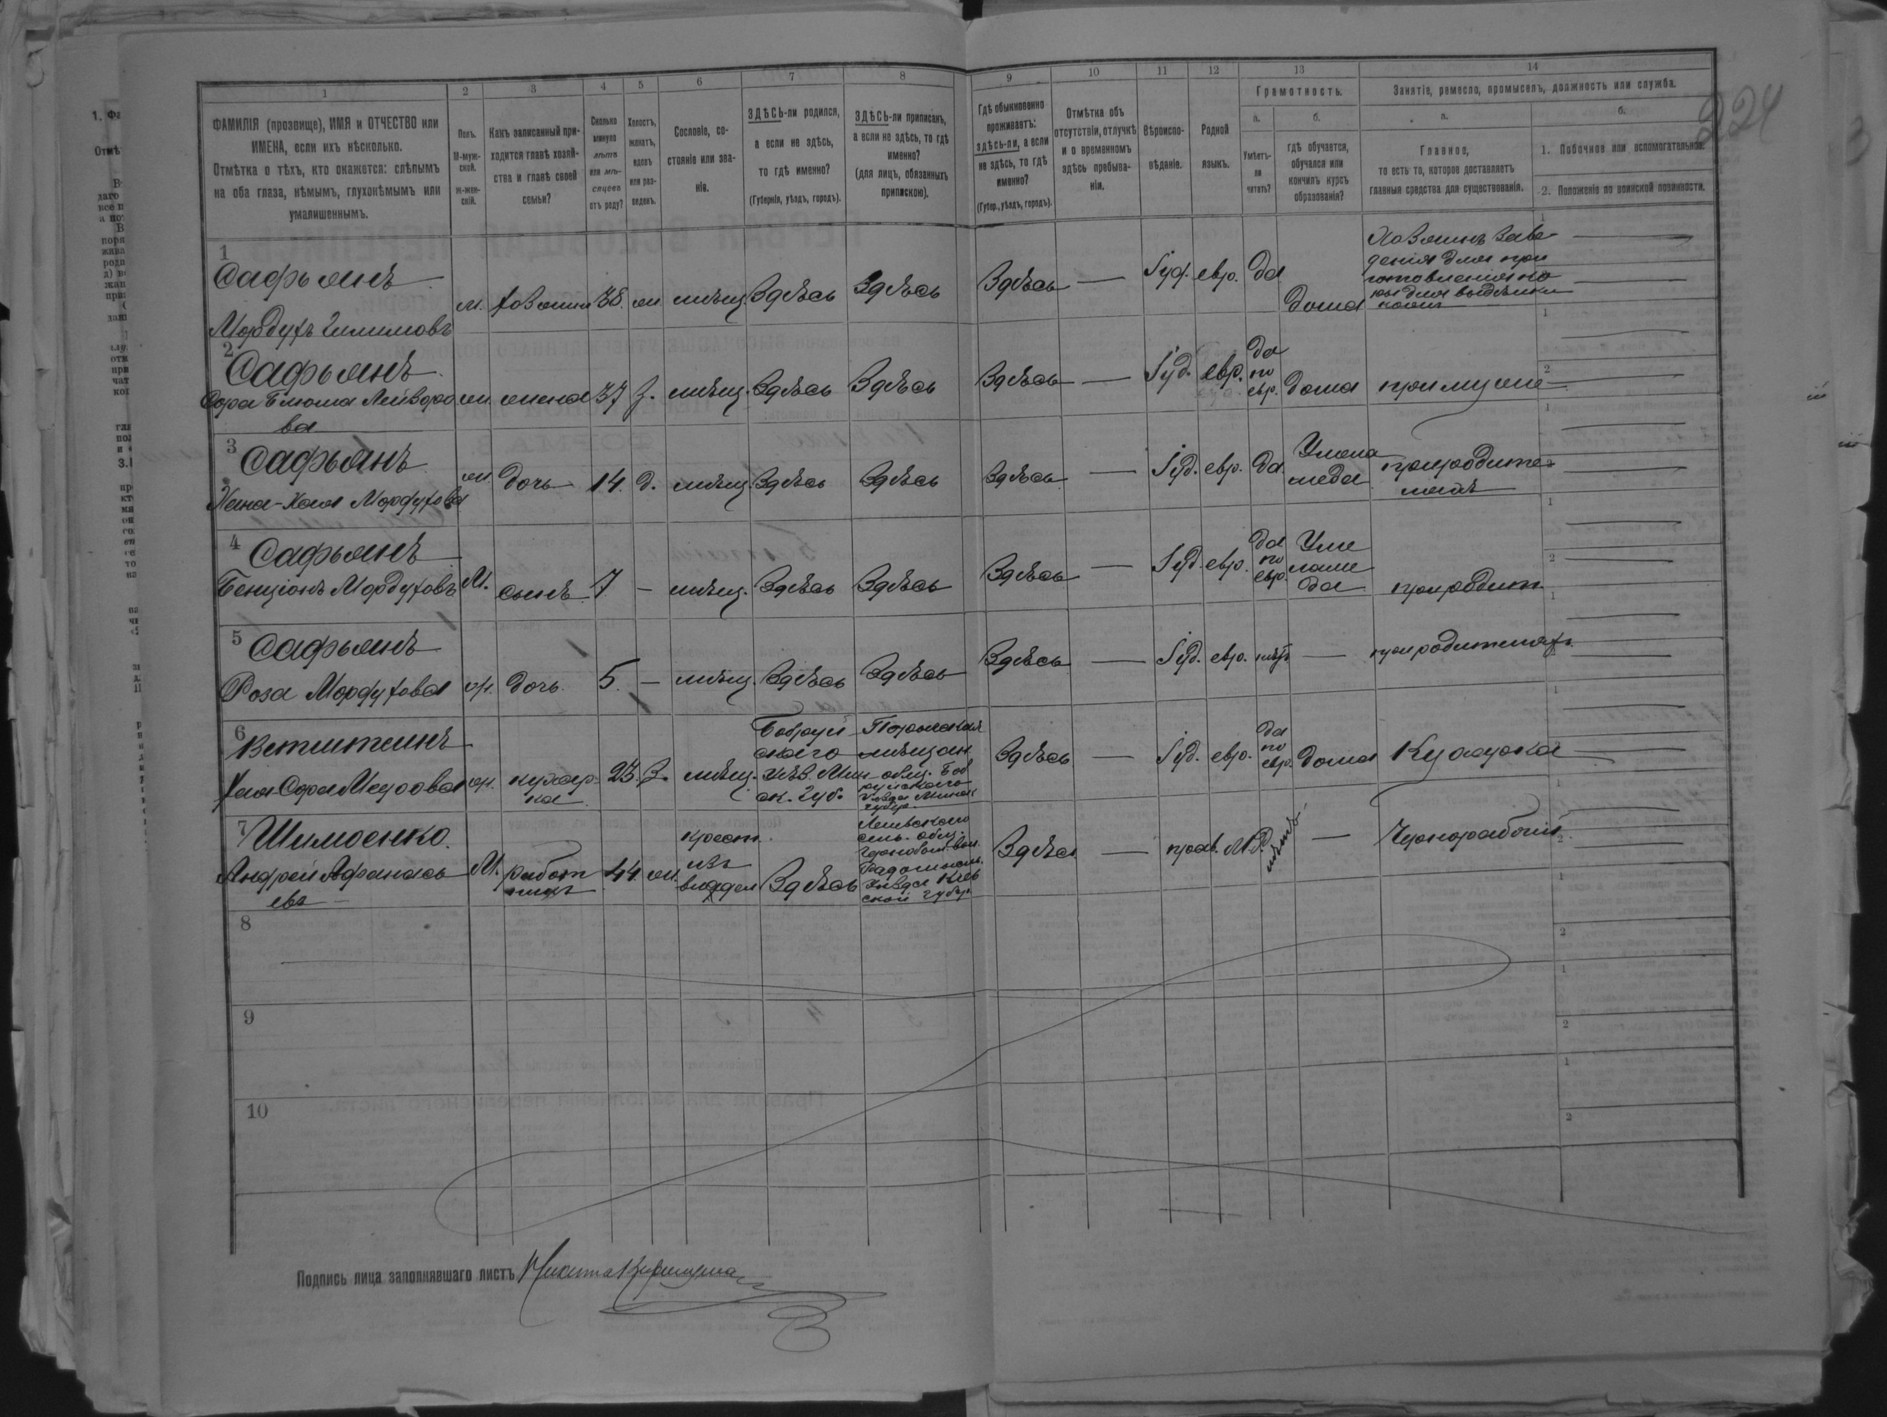 224
1 2 3 4 5 6 7 8 9 10 11 12 13 14
ФАМИЛІЯ (прозвище), ИМЯ и ОТЧЕСТВО или
ИМЕНА, если ихъ нѣсколько.
Отмѣтка о тѣхъ, кто окажется: слѣпымъ
на оба глаза, нѣмымъ, глухонѣмымъ или
умалишеннымъ.
Полъ.
М-муж-
ской.
Ж-жен-
скій.
Какъ записанный при-
ходится главѣ хозяй-
ства и главѣ своей
семьи?
Сколько
минуло
лѣтъ
или мѣ-
сяцевъ
отъ роду?
Холостъ,
женатъ,
вдовъ
или раз-
веденъ.
Сословіе, со-
стояніе или зва-
ніе.
ЗДѢСЬ-ли родился,
а если не здѣсь,
то гдѣ именно?
(Губернія, уѣздъ, городъ).
ЗДѢСЬ-ли приписанъ,
а если не здѣсь, то гдѣ
именно?
(для лицъ, обязанныхъ
припискою).
Гдѣ обыкновенно
проживаетъ:
здѣсь-ли, а если
не здѣсь, то гдѣ
именно?
(Губер., уѣздъ, городъ).
Отмѣтка объ
отсутствіи, отлучкѣ
и о временномъ
здѣсь пребыва-
ніи.
Вѣроиспо-
вѣданіе.
Родной
языкъ.
Грамотность.
а.
Умѣетъ-
ли
читать?
б.
гдѣ обучается,
обучался или
кончилъ курсъ
образованія?
Занятіе, ремесло, промыселъ, должность или служба.
а.
Главное,
то есть то, которое доставляетъ
главныя средства для существованія.
б.
1. Побочное или вспомогательное.
2. Положеніе по воинской повинности.
1
Сафьянъ
Мордухъ
м. хозяинъ 38 ж мѣщ Здѣсь Здѣсь Здѣсь — Іуд. евр. да дома
Хозяинъ заве-
денія для при
готовленія ко
жи для выдѣлки
2
Сафьянъ
Сора Блюма Лейзоро
ва
ж жена 37 З. мѣщ. Здѣсь Здѣсь Здѣсь — Іуд. евр. да по евр. дома при муже
3
Сафьянъ
Хана-Хая Мордухова
ж дочь 14 д. мѣщ. Здѣсь Здѣсь Здѣсь — Іуд. евр. да
У мела
меда
при родите-
ляхъ
4
Сафьянъ
Бенціонъ Мордуховъ
М. сынъ 7 — мѣщ. Здѣсь Здѣсь Здѣсь — Іуд. евр. да по евр.
У ме
ламе
да
при родит
5
Сафьянъ
Роза Мордухова
ж. дочь 5 — мѣщ. Здѣсь Здѣсь Здѣсь — Іуд. евр. нѣтъ — при родителяхъ
6
Хая Сора
ж. кухар
ка
23 З. мѣщ.
Бобруй
скаго
уѣз. Мин
ск. губ.
мѣщан
общ. Боб
руйскаго
уѣзда Минск
губер.
Здѣсь — Іуд. евр. да по евр. дома Кухарка
7
Шимоенко.
Андрей Афанась
евъ
М. работ
никъ
44 ж.
крест.
изъ
владѣл
Здѣсь
сель. общ.
Чернобыл. вол.
Радомысль.
уѣзда Кіев
ской губер
Здѣсь — прав. М.Р. нѣтъ — Чернорабочій
8
9
10
Подпись лица заполнявшаго листъ Никита